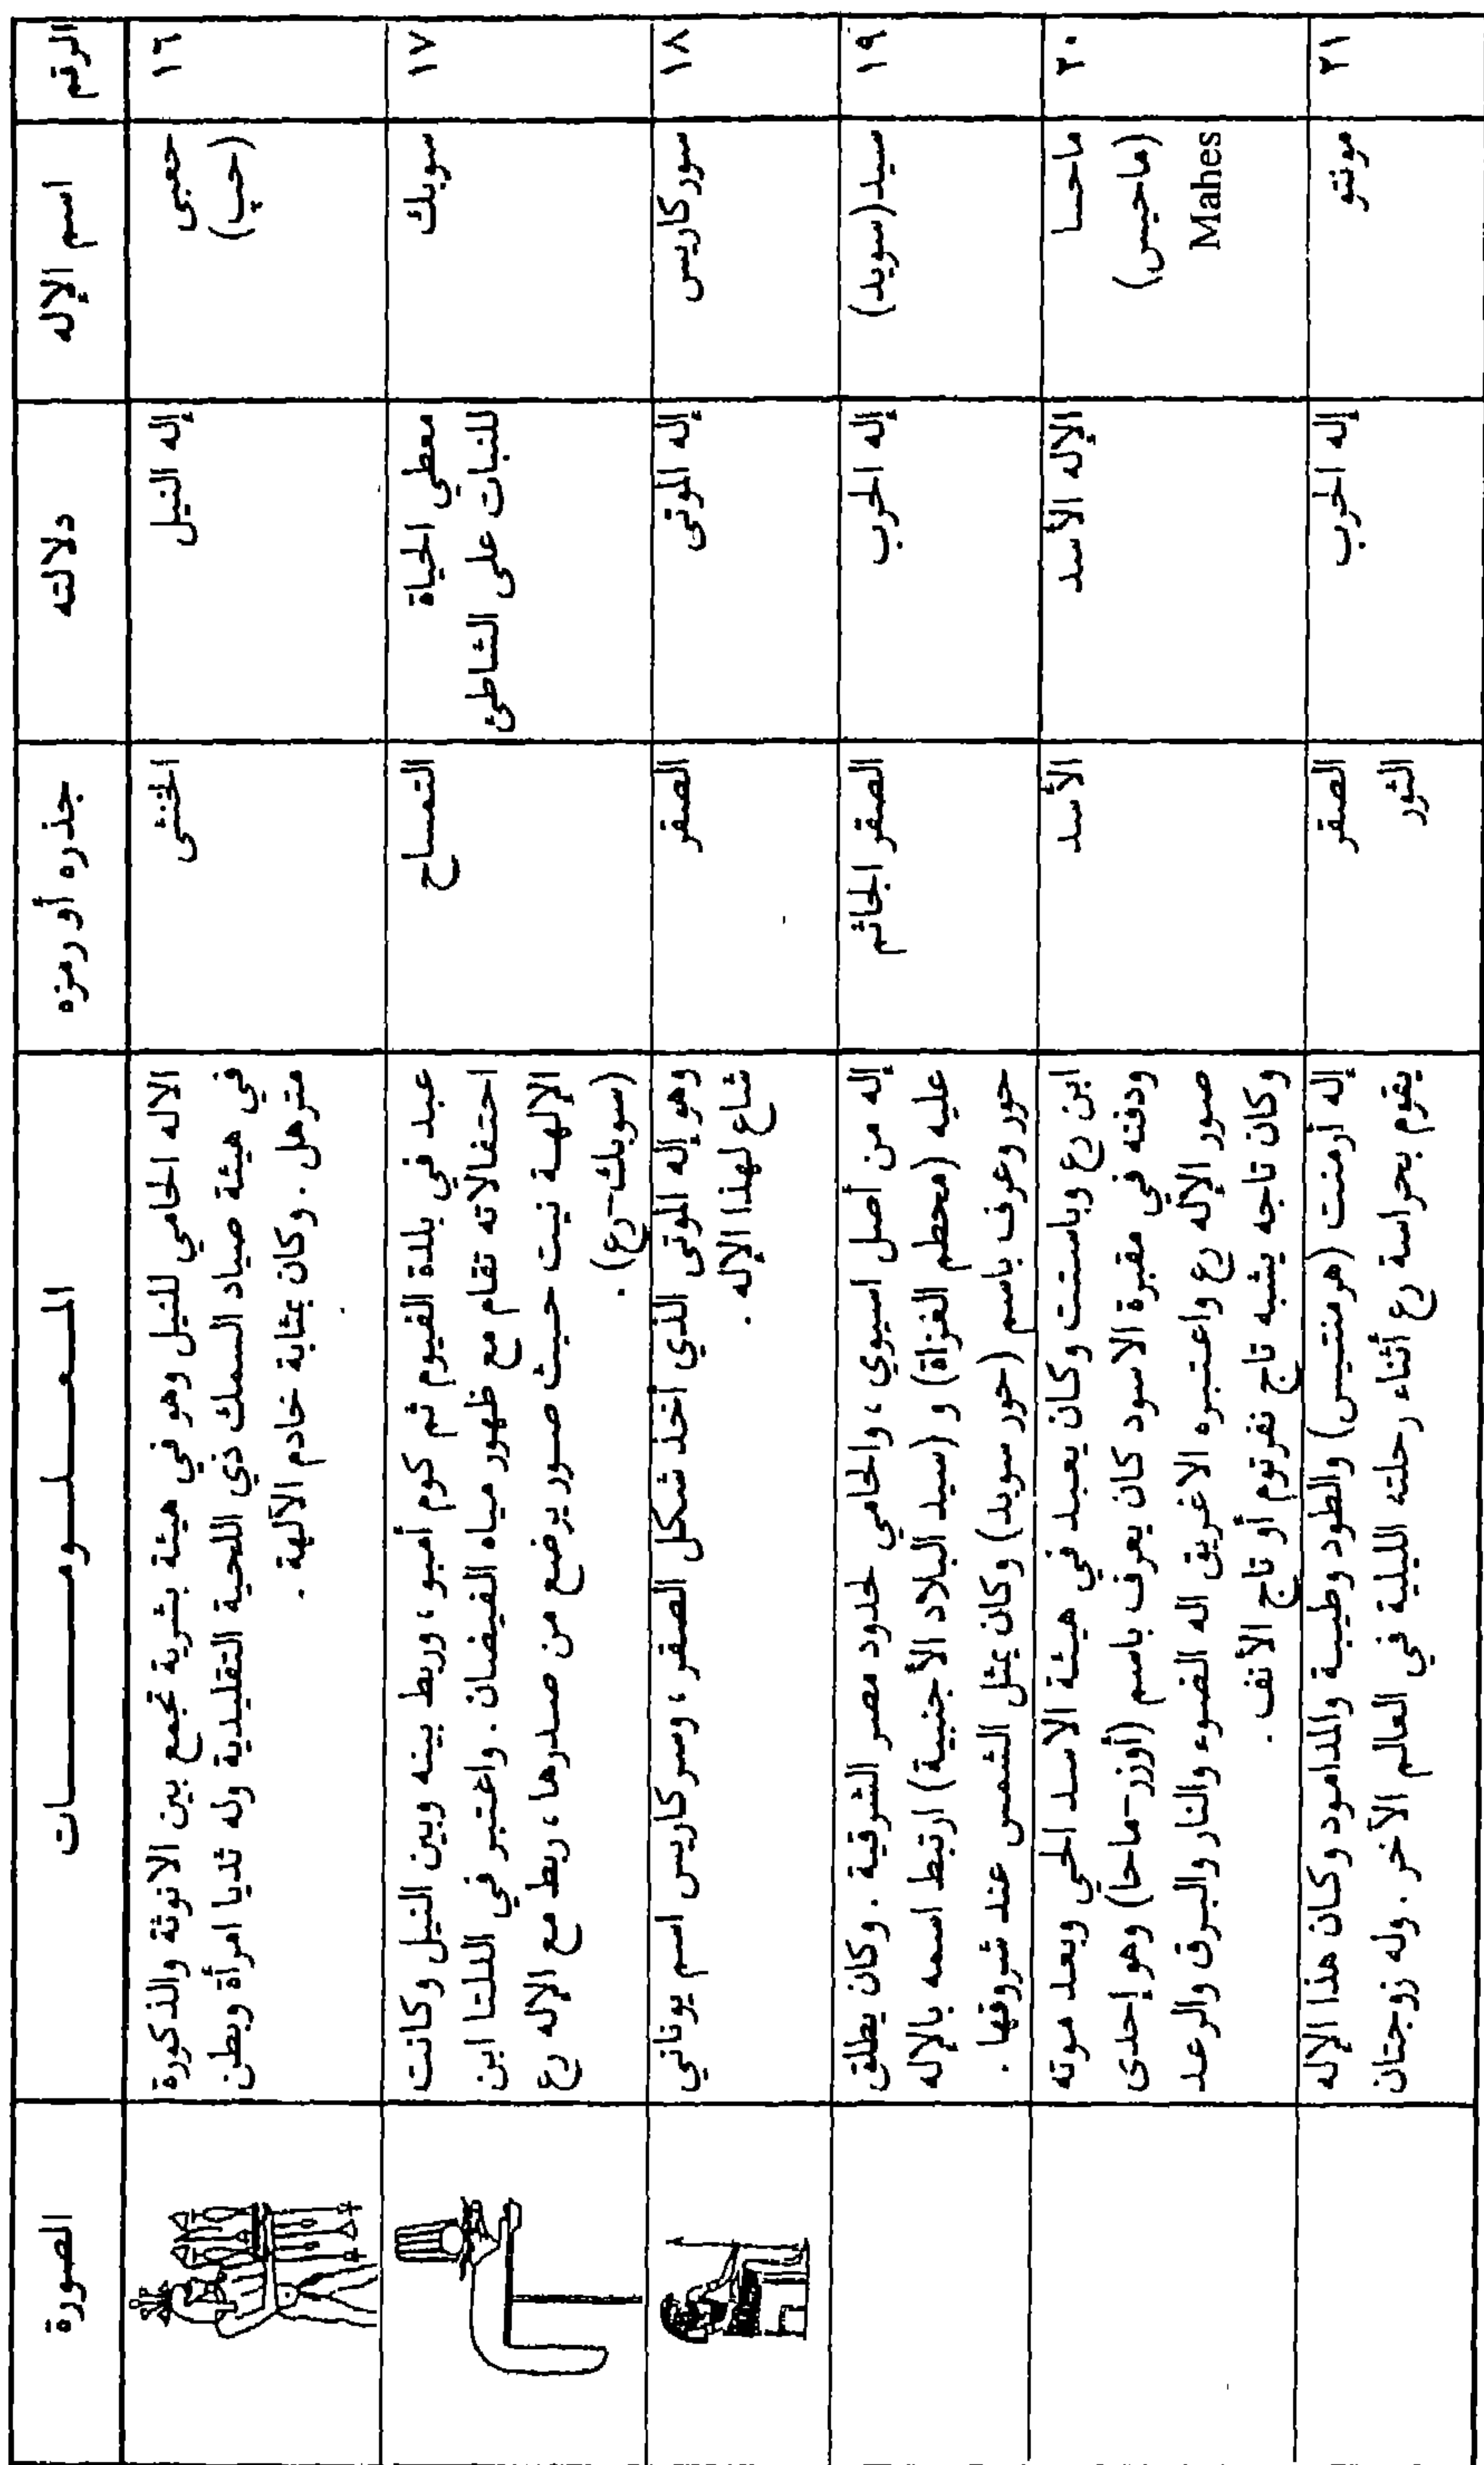 الرقم
اسم الإله
دلالته
جذره أو رمزه
المعلومات
الصورة
١٦
حعبى
(حپ)
إله النيل
الخنثى
الاله الحامي للنيل وهو في هيئة بشرية تجمع بين الانوثة والذكورة
في هيئة صياد السمك ذي اللحية التقليدية وله ثديا امرأة وبطن
مترهل . وكان بمثابة خادم الآلهة .
١٧
سوبك
معطي الحياة
للنبات على الشاطئ
التمساح
عبد في بلدة الفيوم ثم كوم أمبو ، وربط بينه وبين النيل وكانت
احتفالاته تقام مع ظهور مياه الفيضان . واعتبر في الدلتا ابن
الإلهة نيت حيث صور يرضع من صدرها ، ربط مع الإله رع
(سوبك-رع) .
١٨
سوركاريس
إله الموتى
الصقر
وهو إله الموتى الذي أخذ شكل الصقر ، وسركاريس اسم يوناني
شاع لهذا الإله .
١٩
سيد(سوبد)
إله الحرب
الصقر الجاثم
إله من أصل اسيوي ، والحامي لحدود مصر الشرقية . وكان يطلق
عليه (محطم الغزاة) و (سيد البلاد الأجنبية) ارتبط اسمه بالإله
حور وعرف باسم (حور سوبد) وكان يمثل الشمس عند شروقها .
٢٠
ماحسا
(ماحيس)
Mahes
الإله الأسد
الأسد
ابن رع وباستت وكان يعبد في هيئة الاسد الحي وبعد موته
ودفنه في مقبرة الاسود كان يعرف باسم (أوزر-ماحا) وهو إحدى
صور الإله رع واعتبره الاغريق اله الضوء والنار والبرق والرعد
وكان تاجه يشبه تاج نفرتوم أو تاج الأنف .
٢١
مونتو
إله الحرب
الصقر
الثور
إله أرمنت (هرمنتيس) والطود وطيبة والمدامود وكان هذا الإله
يقوم بحراسة رع أثناء رحلته الليلية في العالم الآخر . وله زوجتان